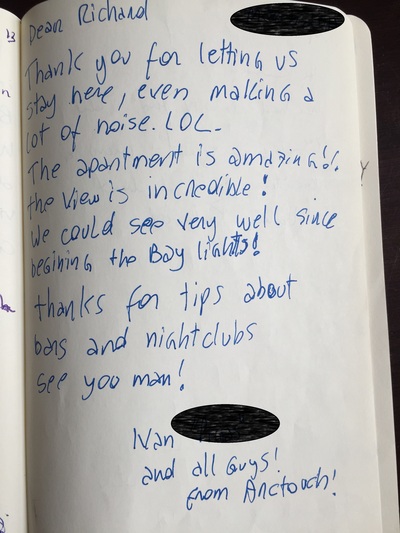 Dear Richard
Thank you for letting us
stay here, even making a
lot of noise. LOL.
The apartment is amazing!!
the view is incredible!
We could see very well since
begining the Bay lights!
thanks for tips about
bars and nightclubs
see you man!
Ivan
and all Guys!
from Arctouch!